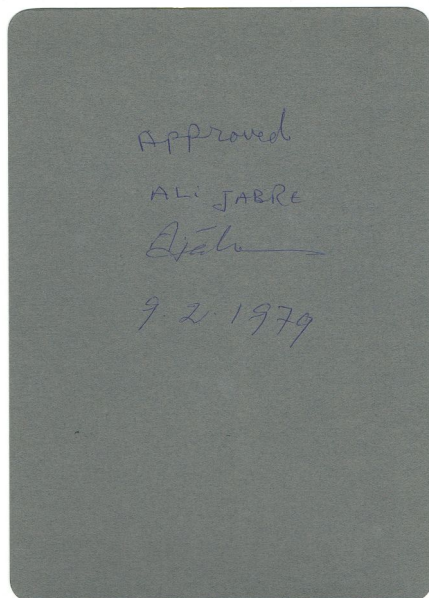 Approved
ALI JABRE
9.2.1979